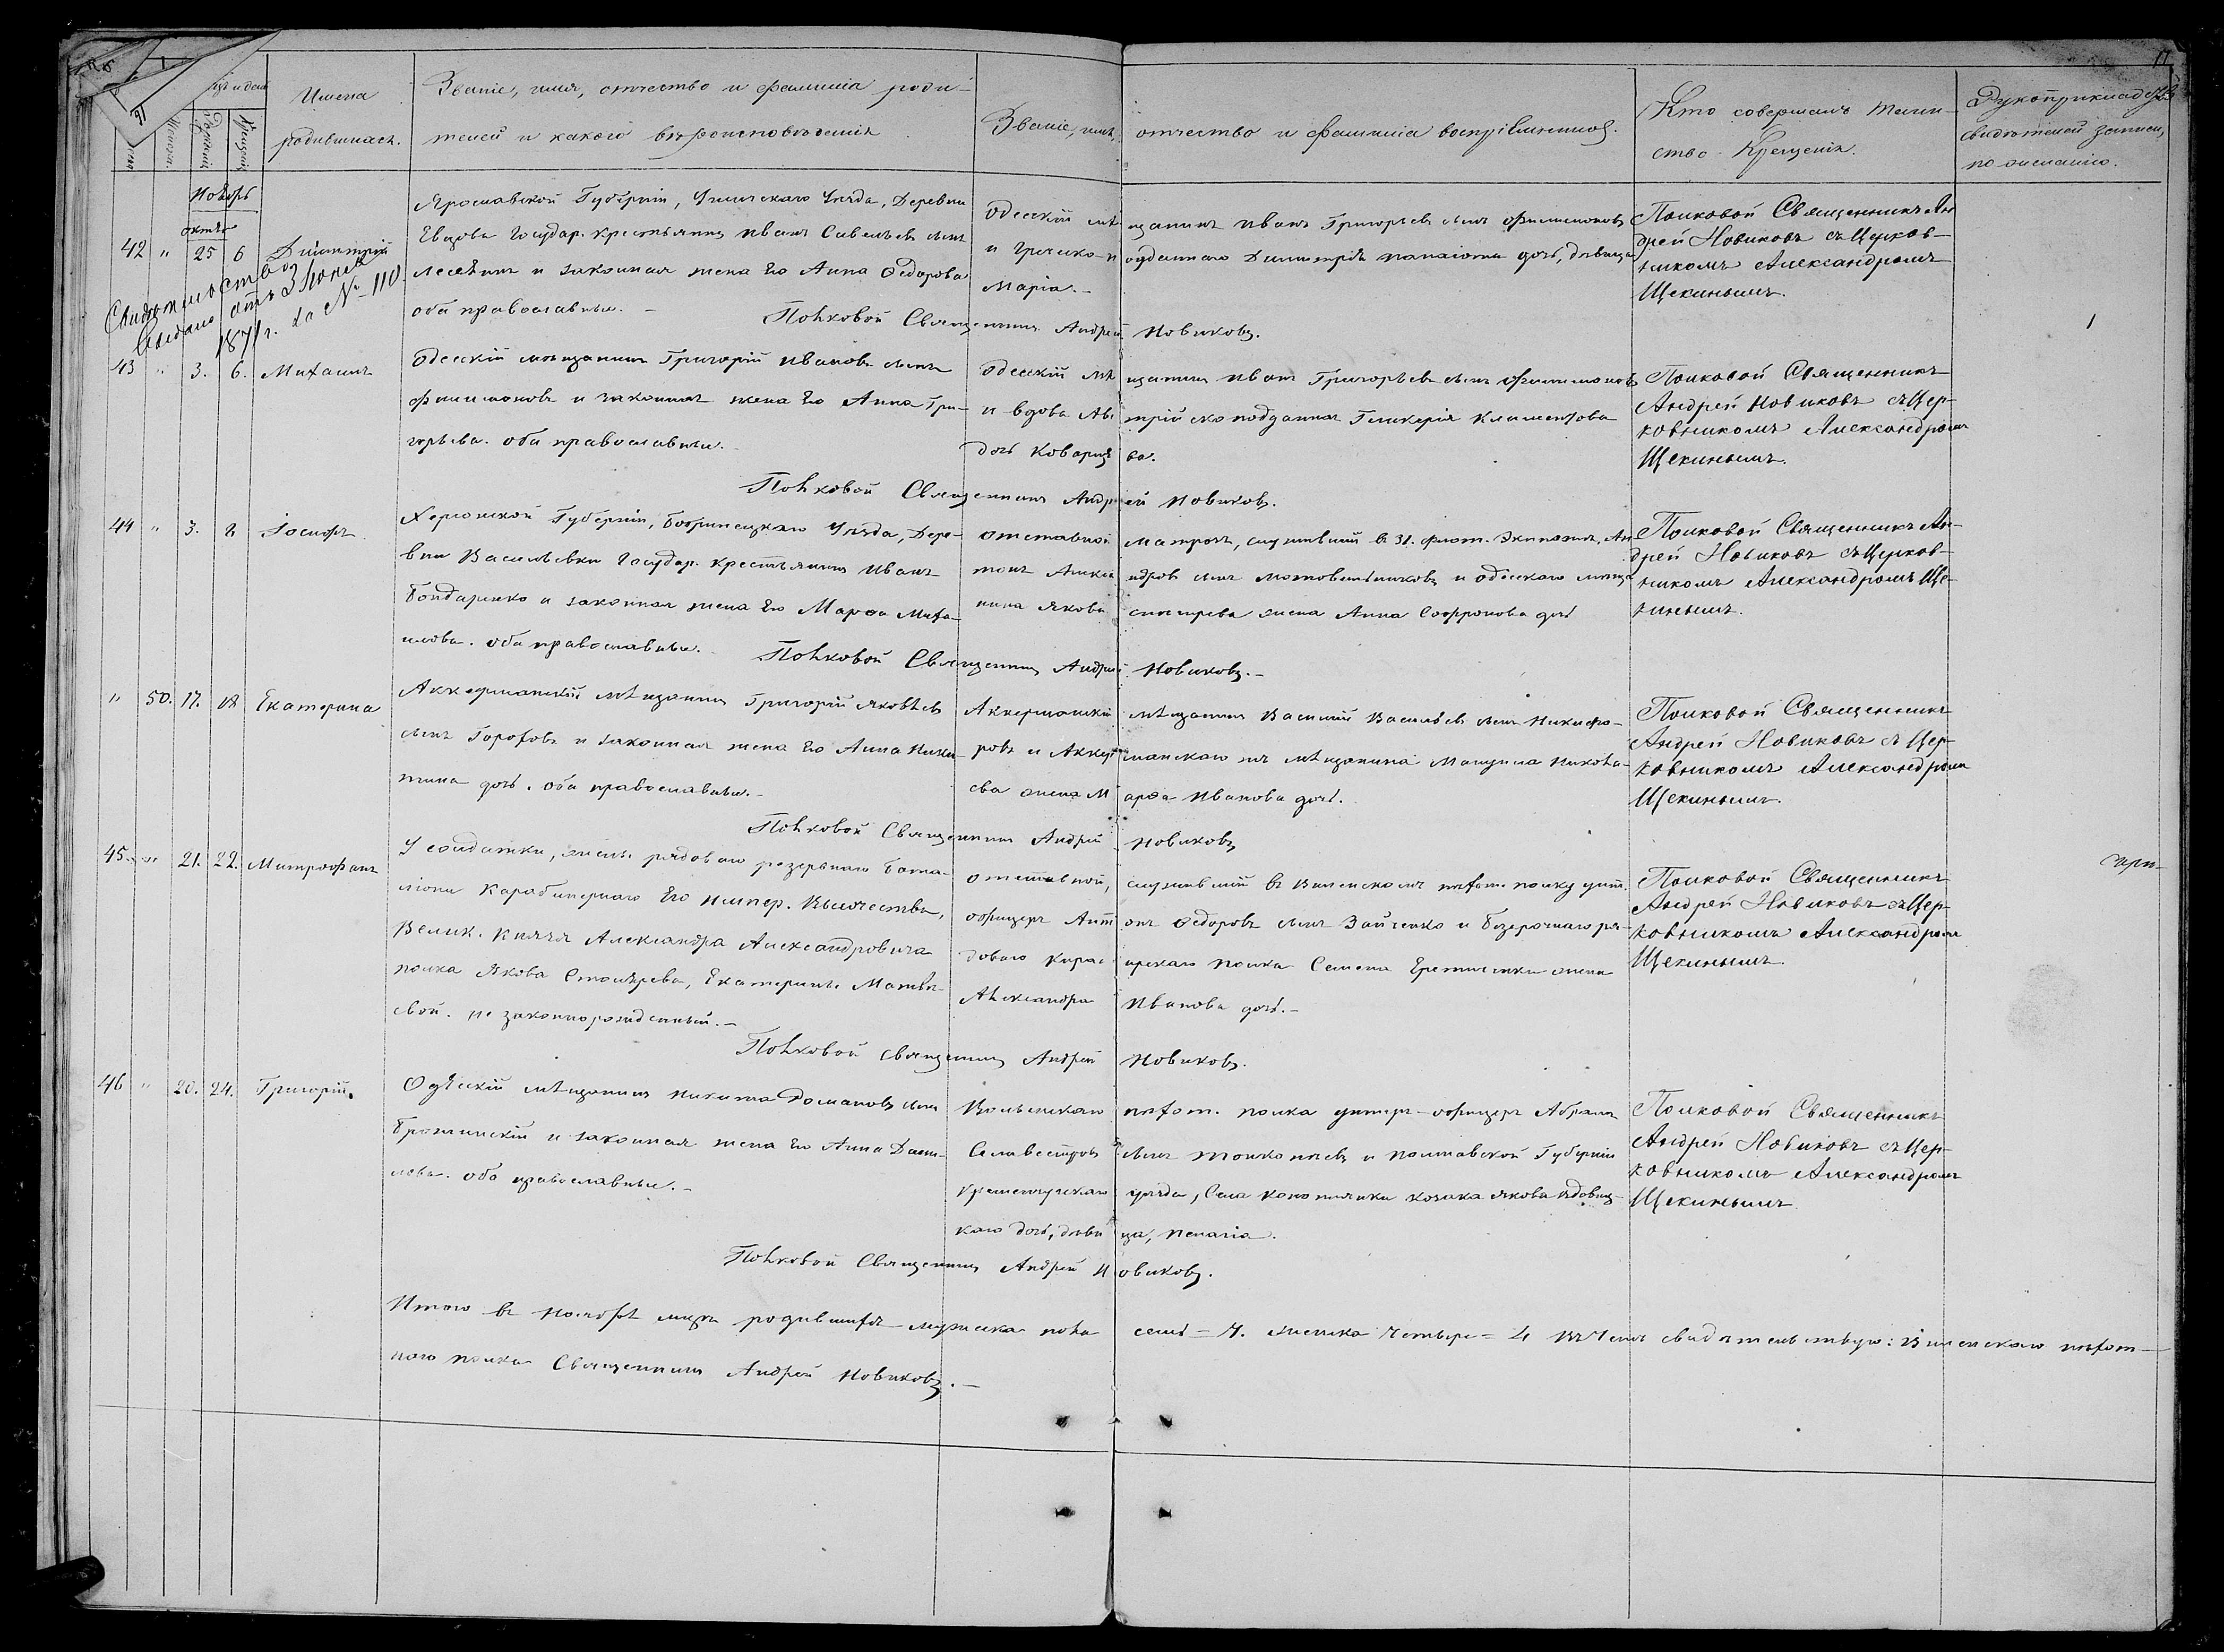 Имена
родившихся.
Званіе, имя, отчество и фамилія роди-
телей и какого вѣроисповѣданія
Званіе, имя, отчество и фамилія воспріемниковъ.
Кто совершалъ таин-
ство Крещенія.
Рукоприкладство
свидѣтелей записи
по желанію.
Женск.
Рожденія
Крещенія
Ноябрь
октяб.
42 " 25 6 Димитрій
Ярославской Губерніи, Угличскаго Уѣзда, Деревни
Государ. крестьянинъ Иванъ Савельевъ сынъ
и законная жена его Анна Ѳедорова
оба православные.
Одесскій мѣщанинъ Иванъ Григорьевъ сынъ Филимоновъ
и Греческо-подданнаго Димитрія дочь, дѣвица
Марія.
Полковой Священникъ Ан-
дрей Новиковъ съ Церков-
никомъ Александромъ
Щекинымъ.
Свидѣтельство
выдано отъ 3 Юня
1871 г. за № 110.
Полковой Священникъ Андрей Новиковъ.
43 " 3. 6. Михаилъ
Одесскій мѣщанинъ Григорій Ивановъ сынъ
Филимоновъ и законная жена его Анна Гри-
горьева. оба православные.
Одесскій мѣщанинъ Иванъ Григорьевъ сынъ Филимоновъ
и вдова Австрійско подданная Гликерія Климентова
дочь
Полковой Священникъ
Андрей Новиковъ съ Цер-
ковникомъ Александромъ
Щекинымъ.
Полковой Священникъ Андрей Новиковъ.
44 " 3. 8 Іосифъ
Херсонской Губерніи, Бобринецкаго Уѣзда, Дере-
вни Васильевки Государ. крестьянинъ Иванъ
Бондаренко и законная жена его Марѳа Миха-
илова. оба православные.
отставной матросъ, служившій въ 31. флот. Экипажѣ, Ан-
тонъ Александровъ сынъ и одесскаго мѣща-
нина Якова жена Анна Софронова дочь
Полковой Священникъ Ан-
дрей Новиковъ съ Церков-
никомъ Александромъ Ще-
кинымъ.
Полковой Священникъ Андрей Новиковъ.
" 50. 17. 18 Екатерина
Аккерманскій мѣщанинъ Григорій Яковлевъ
сынъ Гороховъ и законная жена его Анна Ники-
тина дочь. оба православные.
Аккерманскій мѣщанинъ Василій Васильевъ сынъ Никифо-
ровъ и Аккерманскаго мѣщанина Николае-
ва жена Марѳа Иванова дочь.
Полковой Священникъ
Андрей Новиковъ съ Цер-
ковникомъ Александромъ
Щекинымъ.
Полковой Священникъ Андрей Новиковъ
45. " 21. 22. Митрофанъ
У солдатки, жены рядоваго резервнаго бата-
ліона Карабинернаго Его Импер. Высочества,
Велик. Князя Александра Александровича
полка Якова Столярева, Екатерины Матвѣ-
евой. не законнорожденный.
отставной, служившій въ Виленскомъ пѣхот. полку унт.
офицеръ Антонъ Ѳедоровъ сынъ Зайченко и ря-
доваго полка Семена жена
Александра Иванова дочь.
Полковой Священникъ
Андрей Новиковъ съ Цер-
ковникомъ Александромъ
Щекинымъ.
Полковой священникъ Андрей Новиковъ.
46 " 20. 24. Григорій.
Одесскій мѣщанинъ Никита Домановъ сынъ
и законная жена его Анна Дани-
лова. оба православные.
пѣхот. полка унтеръ-офицеръ Абрамъ
Селавестровъ сынъ и полтавской Губерніи
Кременчугскаго уѣзда, Села козака Якова
каго дочь, дѣвица, Пелагія.
Полковой Священникъ
Андрей Новиковъ съ Цер-
ковникомъ Александромъ
Щекинымъ
Полковой Священникъ Андрей Новиковъ.
Итого въ Ноябрѣ родившихся мужеска пола семь = 7. женска четыре = 4 въ чемъ свидѣтельствую: Виленскаго пѣхот-
наго полка Священникъ Андрей Новиковъ.